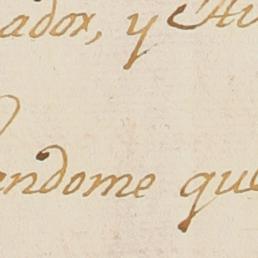 ador, y Au
andome que